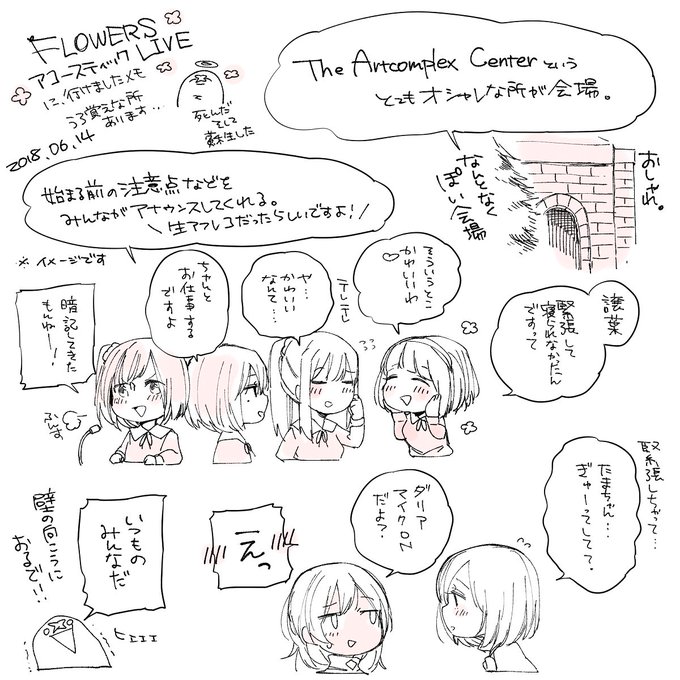 FLOWERS
アコースティック LIVE
に、行けましたメモ
うろ覚えな所
あります…
2018.06.14
死んだ
そして
蘇生した
The Artcomplex Centerという
とてもオシャレな所が会場。
おしゃれ。
なんとなく
ぽい会場
始まる前の注意点などを
みんながアナウンスしてくれる。
\ 生アフレコだったらしいですよ! /
※イメージです
暗記してきた
もんねー!
ふんす
ちゃんと
お仕事する
ですよ
や…
かわいい
なんて…
テレテレ
そういうとこ
かわいいわ
♡
譲葉
緊張して
寝られなかったん
ですって
緊張しちゃって…
たまちゃん…
ぎゅーってしてて?
ダリア
マイクON
だよ?
えっ
いつもの
みんなだ
壁の向こうに
おるで!!
ヒエエエ